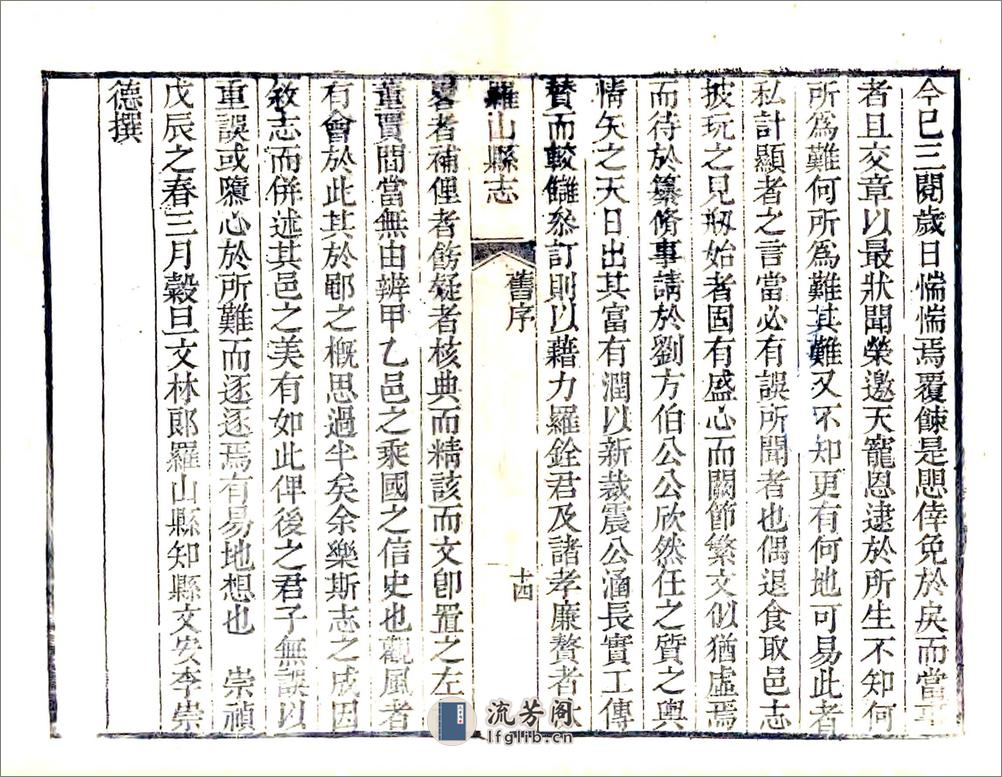 今已三閱歲日惴惴焉覆餗是愳倖免於戾而當事
者且交章以最狀聞榮邀天寵恩逮於所生不知何
所為難何所為難其難又不知更有何地可易此者
私計顯者之言當必有誤所聞者也偶退食取邑志
披玩之見剏始者固有盛心而關節繁文似猶虛焉
而待於纂脩事請於劉方伯公公欣然任之質之輿
情矢之天日出其富有潤以新裁震公涵長實工傳
贊而較讎叅訂則以藉力羅銓君及諸孝廉贅者
羅山縣志
舊序
十四
畧者補俚者飭疑者核典而精該而文卽置之左
董賈間當無由辨甲乙邑之乘國之信史也觀風者
有會於此其於郵之槪思過半矣余樂斯志之成因
敘志而併述其邑之美有如此俾後之君子無誤以
重誤或隳心於所難而逐逐焉有易地想也 崇禎
戊辰之春三月穀旦文林郎羅山縣知縣文安李崇
德撰
流芳阁
lfglib.cn